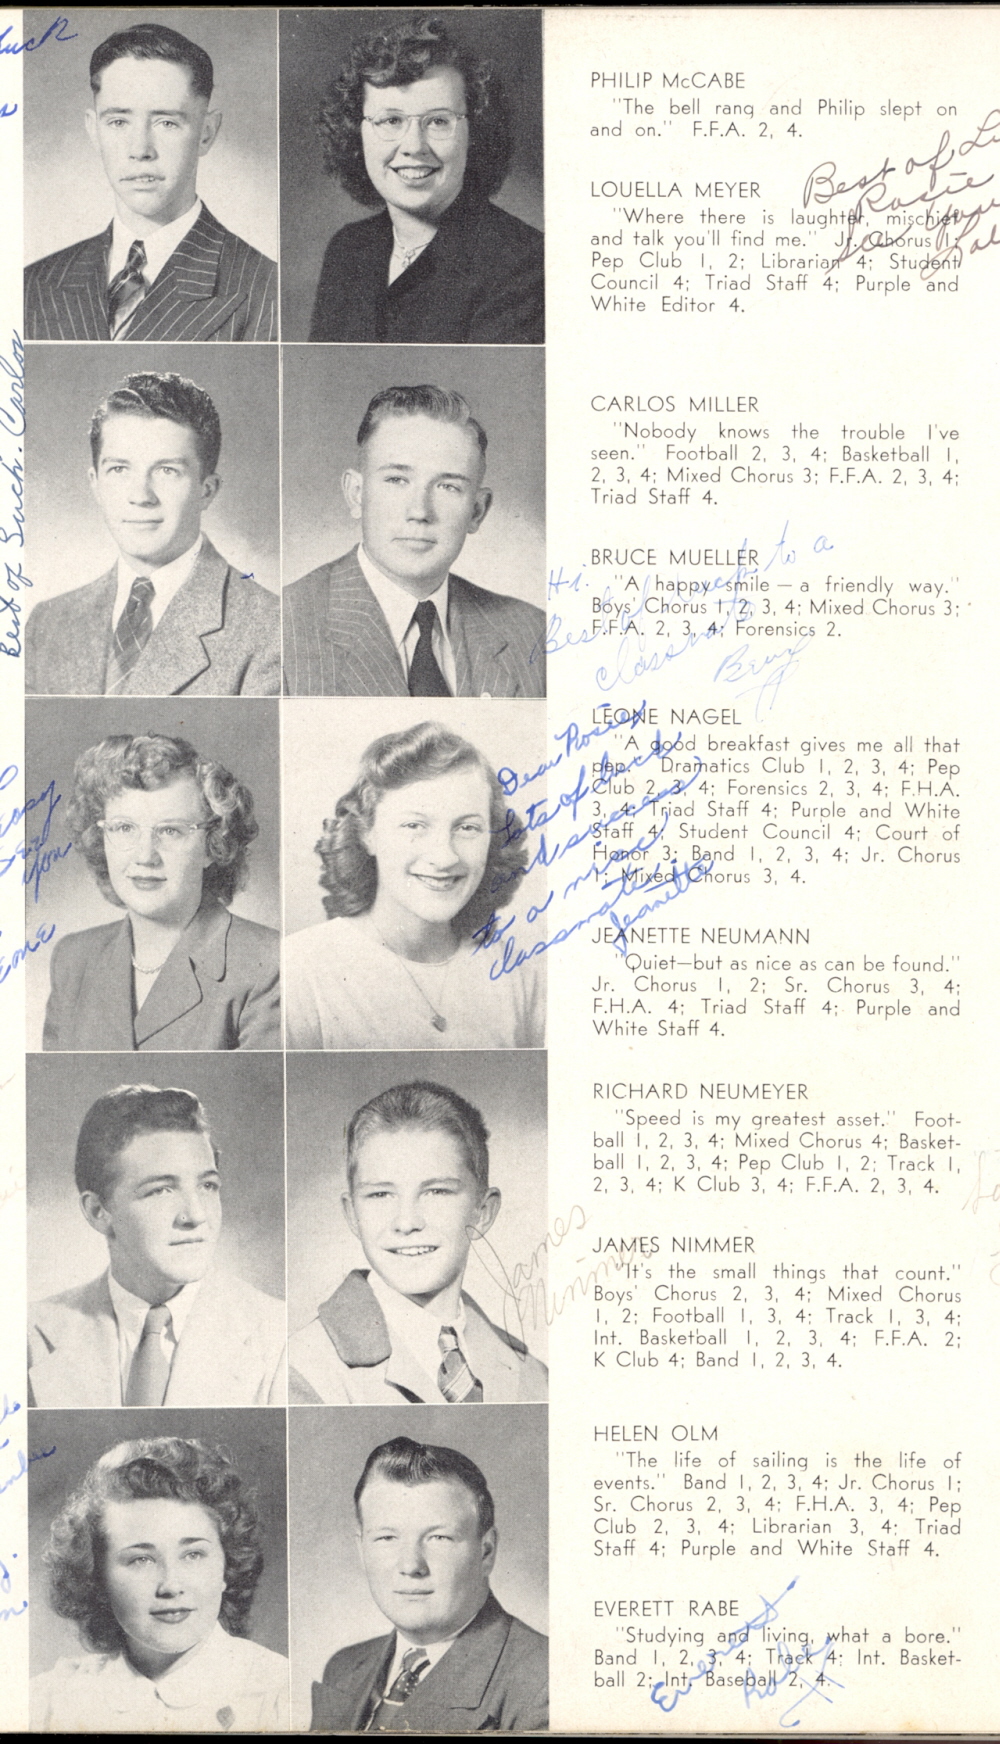 PHILIP McCABE
"The bell rang and Philip slept on
and on." F.F.A. 2, 4.
Best of
Rosie
LOUELLA MEYER
"Where there is laughter, mischief
and talk you'll find me." Jr. Chorus 1;
Pep Club 1, 2; Librarian 4; Student
Council 4; Triad Staff 4; Purple and
White Editor 4.
Best of Luck. Carlos
CARLOS MILLER
"Nobody knows the trouble I've
seen." Football 2, 3, 4; Basketball 1,
2, 3, 4; Mixed Chorus 3; F.F.A. 2, 3, 4;
Triad Staff 4.
BRUCE MUELLER
"A happy smile — a friendly way."
Boys' Chorus 1, 2, 3, 4; Mixed Chorus 3;
F.F.A. 2, 3, 4; Forensics 2.
Hi.
Best of luck to a
classmate
LEONE NAGEL
"A good breakfast gives me all that
pep." Dramatics Club 1, 2, 3, 4; Pep
Club 2, 3, 4; Forensics 2, 3, 4; F.H.A.
3, 4; Triad Staff 4; Purple and White
Staff 4; Student Council 4; Court of
Honor 3; Band 1, 2, 3, 4; Jr. Chorus
1; Mixed Chorus 3, 4.
Dear Rosie,
Lots of luck
and success
to a nice
classmate.
Jeanette
JEANETTE NEUMANN
"Quiet—but as nice as can be found."
Jr. Chorus 1, 2; Sr. Chorus 3, 4;
F.H.A. 4; Triad Staff 4; Purple and
White Staff 4.
RICHARD NEUMEYER
"Speed is my greatest asset." Foot-
ball 1, 2, 3, 4; Mixed Chorus 4; Basket-
ball 1, 2, 3, 4; Pep Club 1, 2; Track 1,
2, 3, 4; K Club 3, 4; F.F.A. 2, 3, 4.
James
Nimmer
JAMES NIMMER
"It's the small things that count."
Boys' Chorus 2, 3, 4; Mixed Chorus
1, 2; Football 1, 3, 4; Track 1, 3, 4;
Int. Basketball 1, 2, 3, 4; F.F.A. 2;
K Club 4; Band 1, 2, 3, 4.
HELEN OLM
"The life of sailing is the life of
events." Band 1, 2, 3, 4; Jr. Chorus 1;
Sr. Chorus 2, 3, 4; F.H.A. 3, 4; Pep
Club 2, 3, 4; Librarian 3, 4; Triad
Staff 4; Purple and White Staff 4.
EVERETT RABE
"Studying and living, what a bore."
Band 1, 2, 3, 4; Track 4; Int. Basket-
ball 2; Int. Baseball 2, 4.
Everett
Rabe